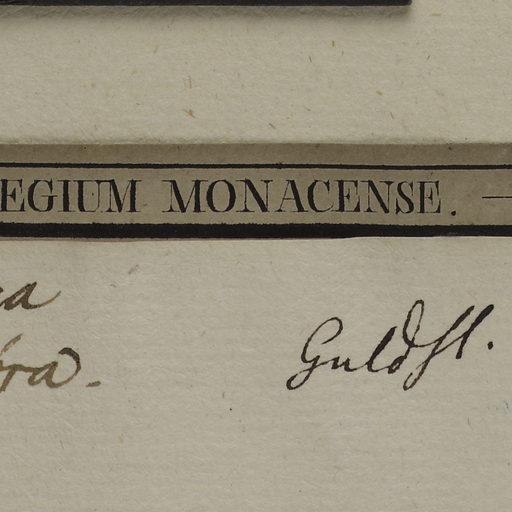 EGIUM MONACENSE. —
ra. Guldst.